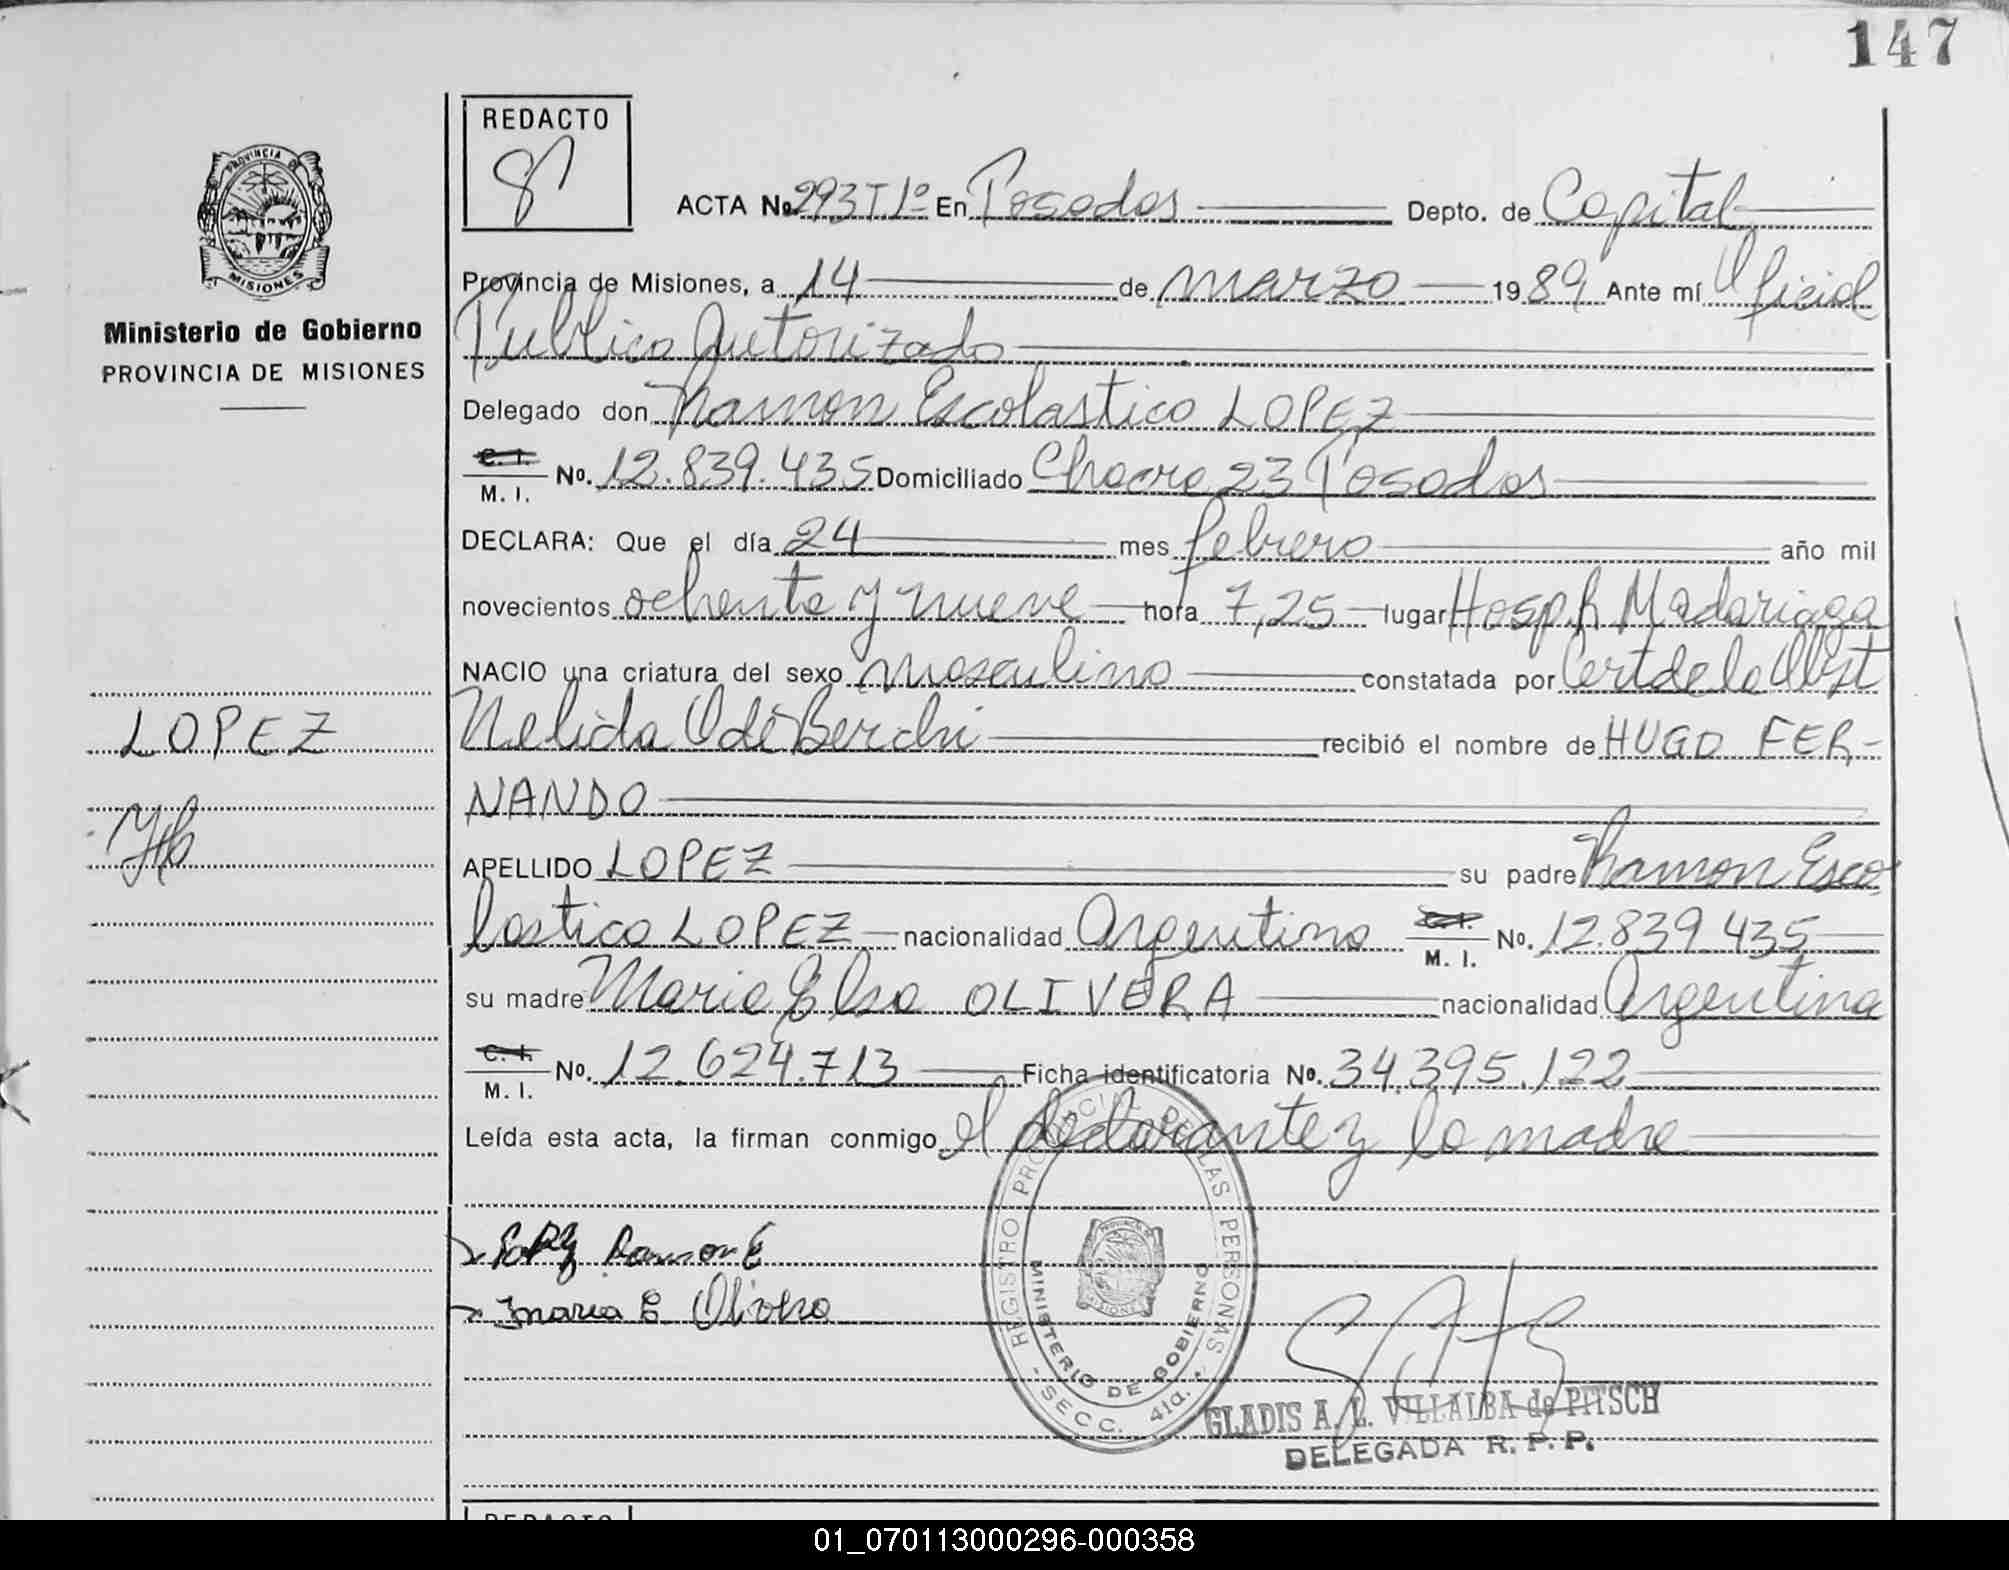 147
REDACTO
PROVINCIA DE
MISIONES
ACTA No. 293 T 1º En Posadas Depto. de Capital
Provincia de Misiones, a 14 de marzo 1989 Ante mí Oficial
Ministerio de Gobierno
Publico Autorizado
PROVINCIA DE MISIONES
Delegado don Ramon Escolastico LOPEZ
C. I.
M. I. No. 12.839.435 Domiciliado Chacra 23 Posadas
DECLARA: Que el día 24 mes febrero año mil
novecientos ochenta y nueve hora 7,25 lugar Hosp. R Madariaga
NACIO una criatura del sexo masculino constatada por Cert de la Obst
LOPEZ
Nelida O de Berchi recibió el nombre de HUGO FER-
NANDO
APELLIDO LOPEZ su padre Ramon Esco
lastico LOPEZ nacionalidad Argentino C. I. M. I. No. 12.839.435
su madre Maria Elsa OLIVERA nacionalidad Argentina
C. I.
M. I. No. 12.624.713 Ficha identificatoria No. 34.395.122
Leída esta acta, la firman conmigo el declarante y la madre
Lopez Ramon E
Maria E Olivera
REGISTRO PROVINCIAL DE LAS PERSONAS
MINISTERIO DE GOBIERNO
- SECC. 41a. -
GLADIS A. L. VILLALBA de PITSCH
DELEGADA R. P. P.
REDACTO
01_070113000296-000358